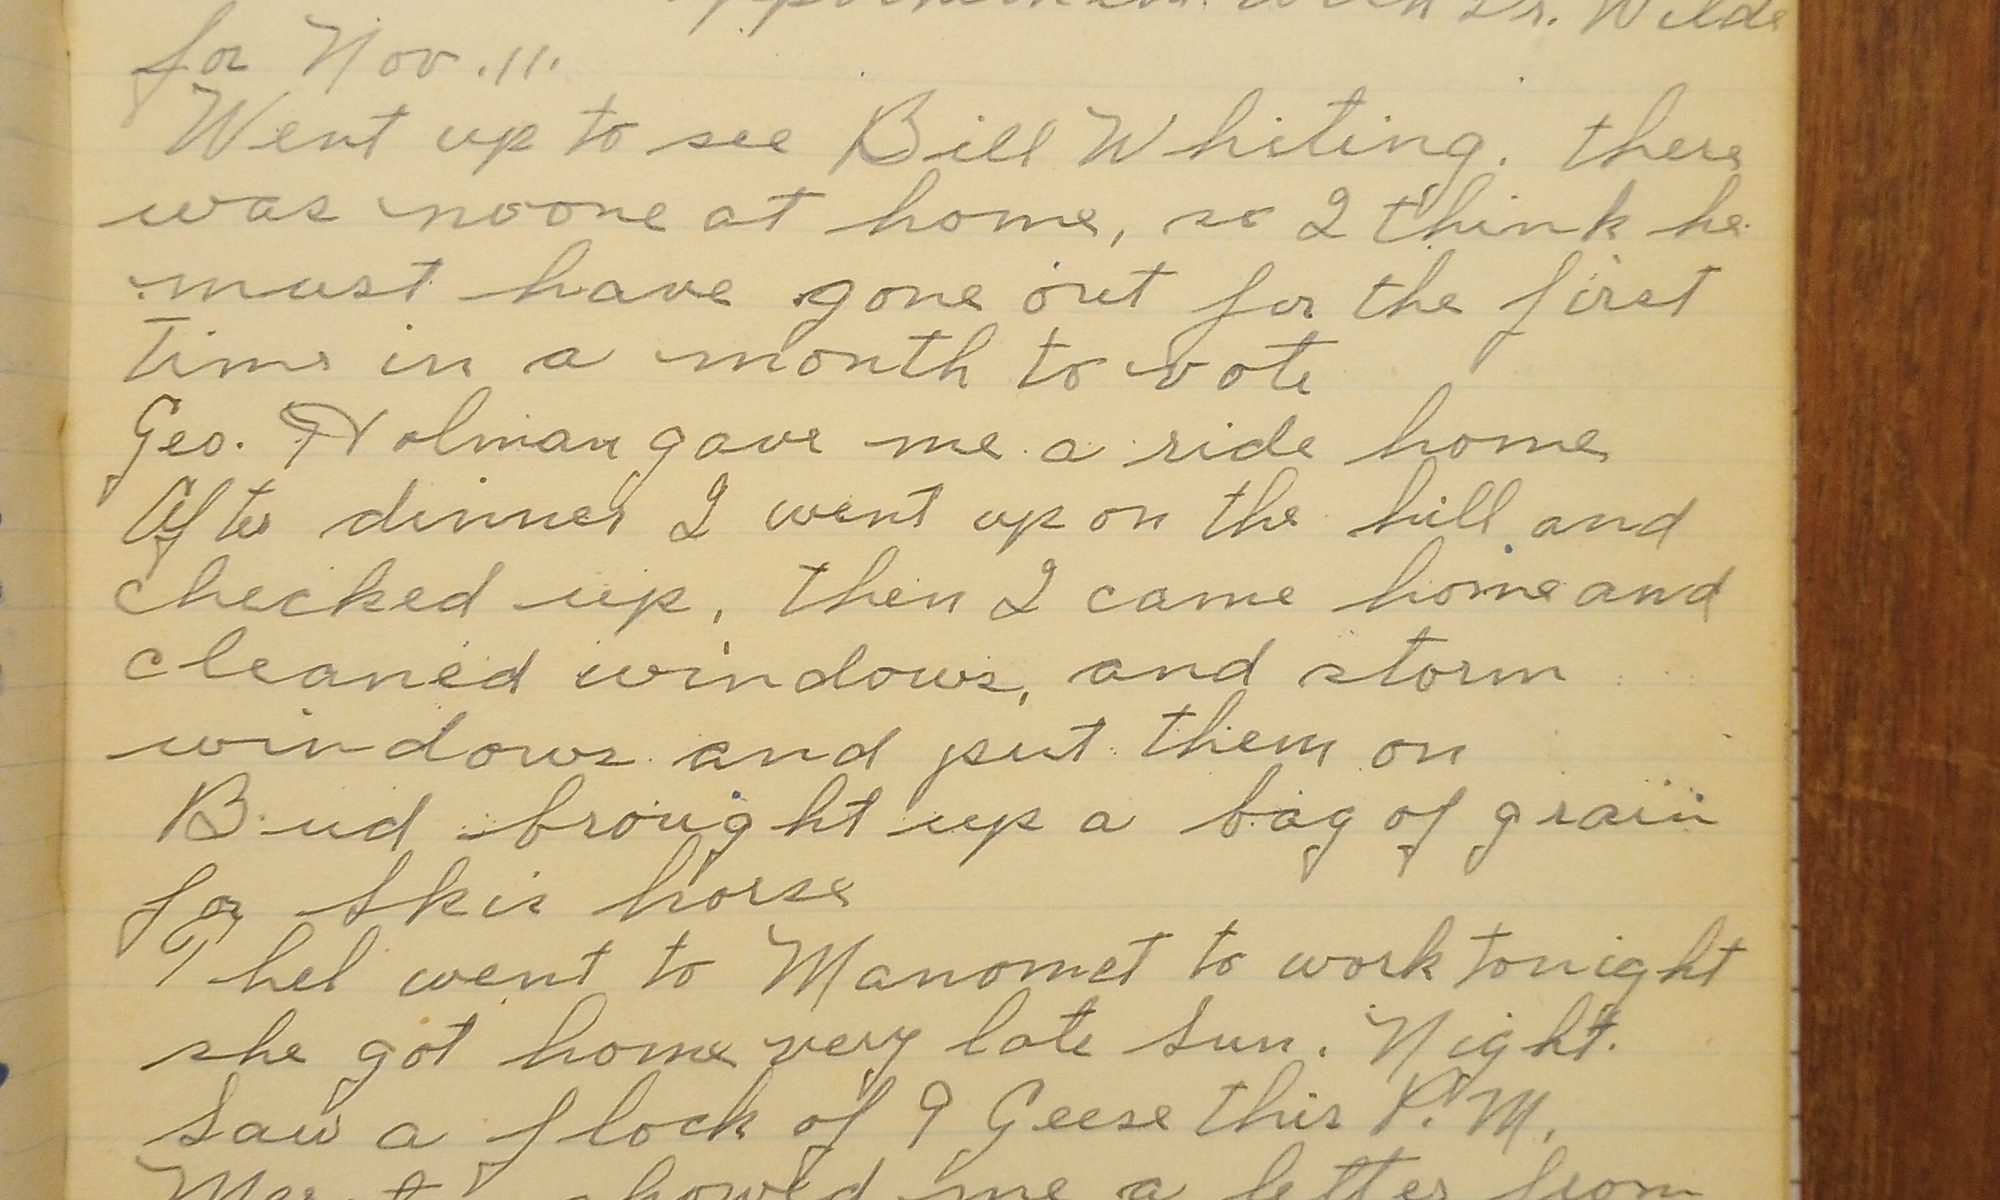 appointment with Dr. Wilde
for Nov. 11.
Went up to see Bill Whiting. there
was noone at home, so I think he
must have gone out for the first
Time in a month to vote
Geo. Holman gave me a ride home
After dinner I went up on the hill and
checked up, then I came home and
cleaned windows, and storm
windows and put them on
Bud brought up a bag of grain
for Skis horse
Thel went to Manomet to work tonight
she got home very late Sun. Night.
Saw a flock of 9 Geese this P.M.
showed me a letter from